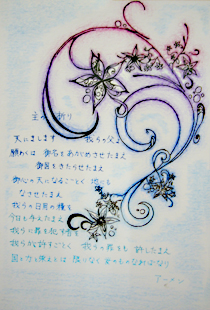 主の祈り
天にまします 我らの父よ
願わくは 御名をあがめさせたまえ
御国をきたらせたまえ
御心の天になるごとく 地にも
なさせたまえ
我らの日用の糧を
今日も与えたまえ
我らに罪を犯す者を
我らが許すごとく 我らの罪をも 許したまえ
国と力と栄えとは 限りなく 汝のものなればなり
アーメン